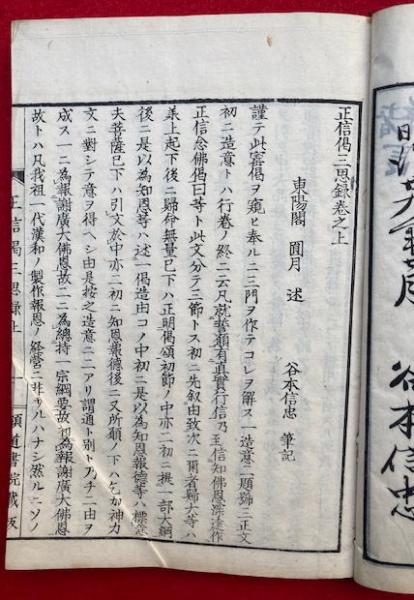 正信偈三思錄卷之上
東陽閣 圓月 述
谷本信忠 筆記
謹テ此寳偈ヲ窺ヒ奉ルニ三門ヲ作テコレヲ解ス一造意二題號三正文
初ニ造意トハ行卷ノ終ニ云凡就誓願有眞實行信乃至信知佛恩深遠作
正信念佛偈曰等ト此文分テ二節トス初ニ先叙由致次ニ爾者歸大等ハ
承上起下後ニ歸命無量已下ハ正明偈頌初節ノ中亦二初ニ提一部大綱
後ニ是以為知恩等ハ述一偈造由コノ中初ニ是以為知恩報德等ハ標
夫菩薩已下ハ引文於中亦二初ニ知恩報德後ニ又所願ノ下ハ乞加神力
文ニ對シテ意ヲ得ヘシ由是按之造意ニ二アリ謂通ト別トナ千二由ヲ
成ス一ニ為報謝廣大佛恩故一ニ為總持一宗綱要故初為報謝廣大佛恩
故トハ凡我祖一代漢和ノ製作報恩ノ經營ニ非サルハナシ然ルニソノ
正信偈三思錄上
一
頭道書院藏板
谷本信忠